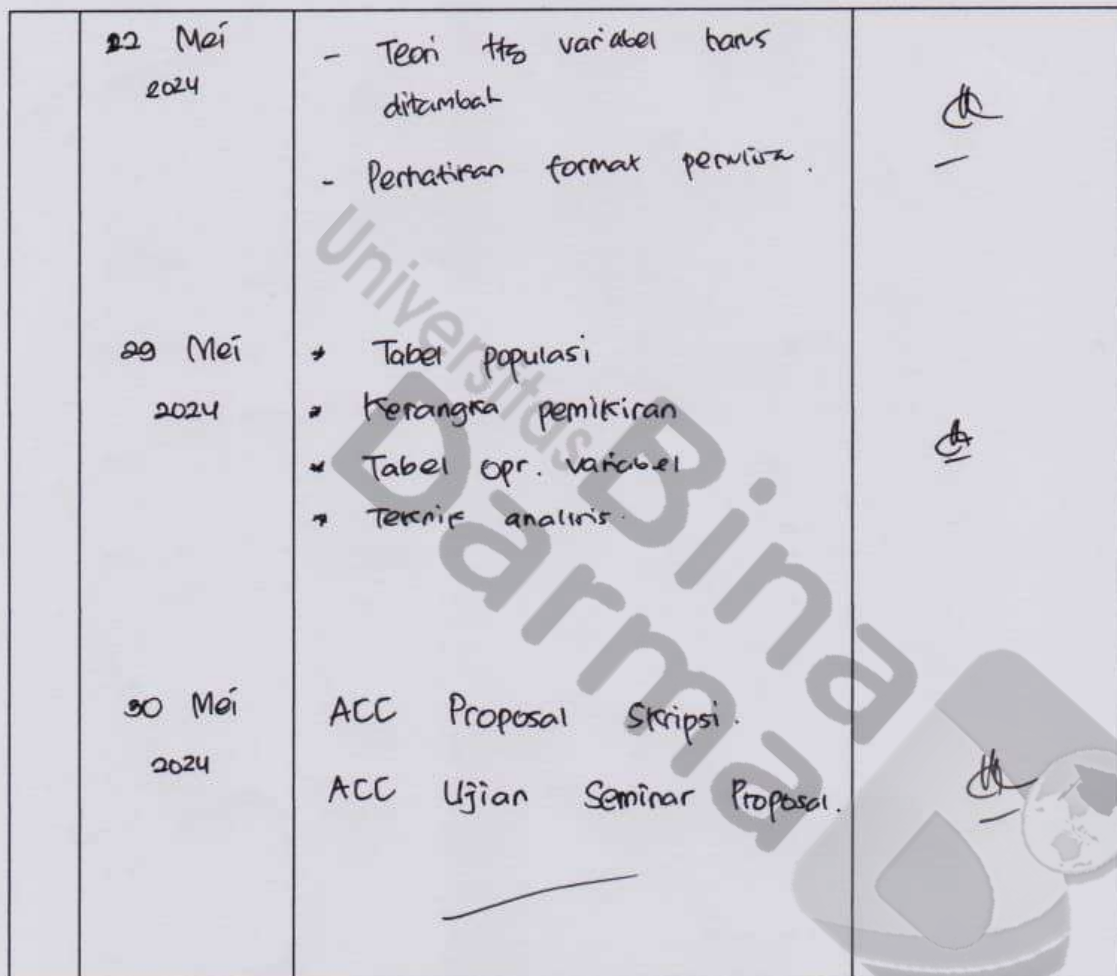 22 Mei
2024
- Teori ttg variabel harus
ditambah
- Perhatikan format penulisan.
29 Mei
2024
* Tabel populasi
* Kerangka pemikiran
* Tabel opr. variabel
* Teknik analisis.
30 Mei
2024
ACC Proposal Skripsi.
ACC Ujian Seminar Proposal.
Universitas
Bina
Darma